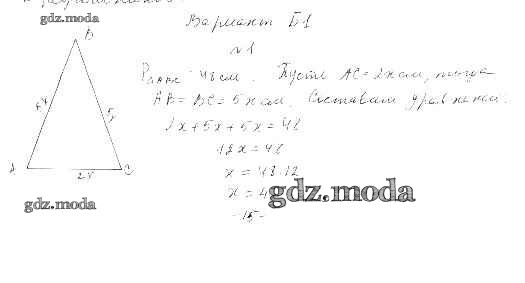 gdz.moda
Вариант Б1
№1
B
P ABC = 48 см. Пусть AC = 2x см, тогда
AB = BC = 5x см. Составим уравнение:
5x
2x + 5x + 5x = 48
12x = 48
A 2x C
x = 48:12
x = 4
gdz.moda
gdz.moda
-15-